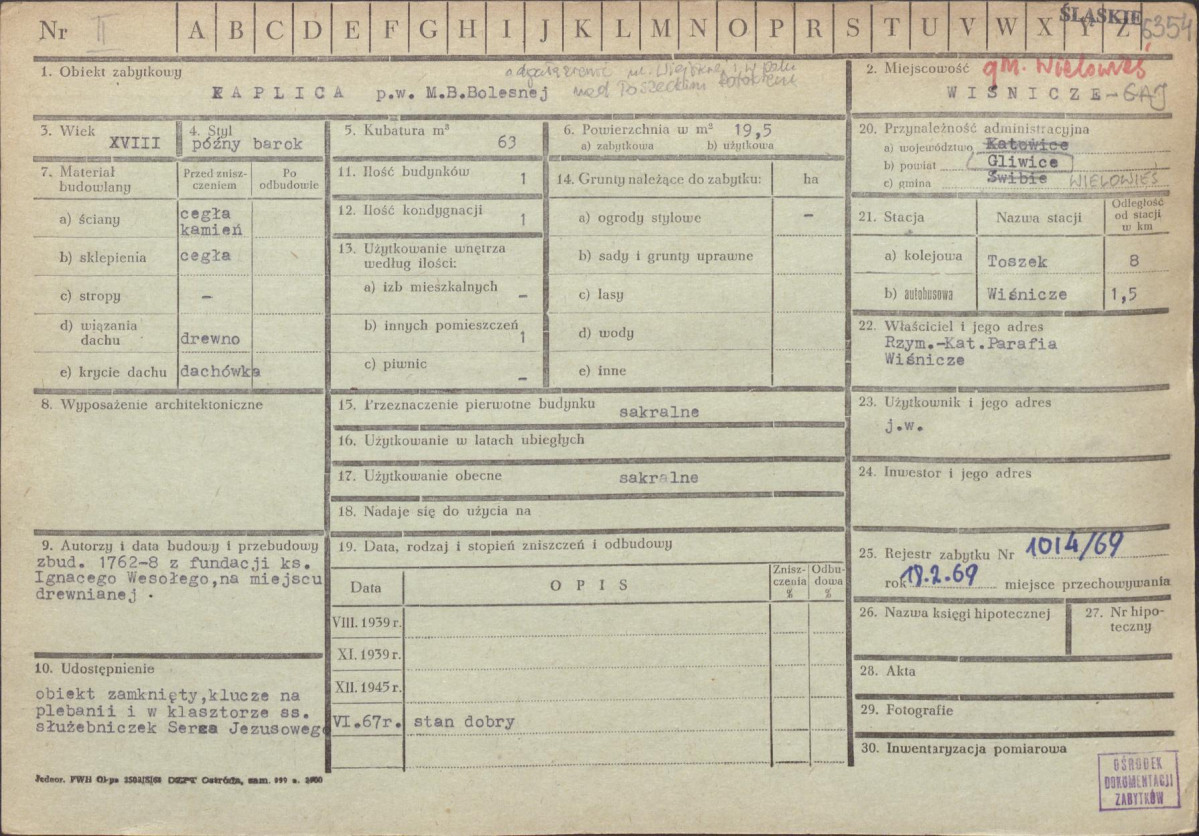 Nr II A B C D E F G H I J K L M N O P R S T U V W X Y Z ŚLĄSKIE 6354
1. Obiekt zabytkowy
KAPLICA p.w. M.B.Bolesnej
ul. Wiejskiej i w polu
nad Toszeckim Potokiem
2. Miejscowość gm. Wielowieś
WIŚNICZE - GAJ
3. Wiek
XVIII
4. Styl
późny barok
5. Kubatura m³
63
6. Powierzchnia w m² 19,5
a) zabytkowa b) użytkowa
20. Przynależność administracyjna
a) województwo Katowice
b) powiat Gliwice
c) gmina Świbie WIELOWIEŚ
7. Materiał budowlany
Przed zniszczeniem
Po odbudowie
a) ściany cegła kamień
b) sklepienia cegła
c) stropy –
d) wiązania dachu drewno
e) krycie dachu dachówka
11. Ilość budynków 1
12. Ilość kondygnacji 1
13. Użytkowanie wnętrza
według ilości:
a) izb mieszkalnych –
b) innych pomieszczeń 1
c) piwnic –
14. Grunty należące do zabytku: ha
a) ogrody stylowe –
b) sady i grunty uprawne
c) lasy
d) wody
e) inne
21. Stacja Nazwa stacji Odległość od stacji w km
a) kolejowa Toszek 8
b) autobusowa Wiśnicze 1,5
22. Właściciel i jego adres
Rzym.-Kat.Parafia
Wiśnicze
8. Wyposażenie architektoniczne
15. Przeznaczenie pierwotne budynku sakralne
16. Użytkowanie w latach ubiegłych
17. Użytkowanie obecne sakralne
18. Nadaje się do użycia na
23. Użytkownik i jego adres
j.w.
24. Inwestor i jego adres
9. Autorzy i data budowy i przebudowy
zbud. 1762-8 z fundacji ks.
Ignacego Wesołego,na miejscu
drewnianej .
19. Data, rodzaj i stopień zniszczeń i odbudowy
Data OPIS Zniszczenia % Odbudowa %
VIII. 1939 r.
XI. 1939 r.
XII. 1945 r.
VI.67r. stan dobry
25. Rejestr zabytku Nr 1014/69
rok 18.2.69 miejsce przechowywania
26. Nazwa księgi hipotecznej
27. Nr hipoteczny
28. Akta
29. Fotografie
30. Inwentaryzacja pomiarowa
10. Udostępnienie
obiekt zamknięty,klucze na
plebanii i w klasztorze ss.
służebniczek Serca Jezusowego
OŚRODEK
DOKUMENTACJI
ZABYTKÓW